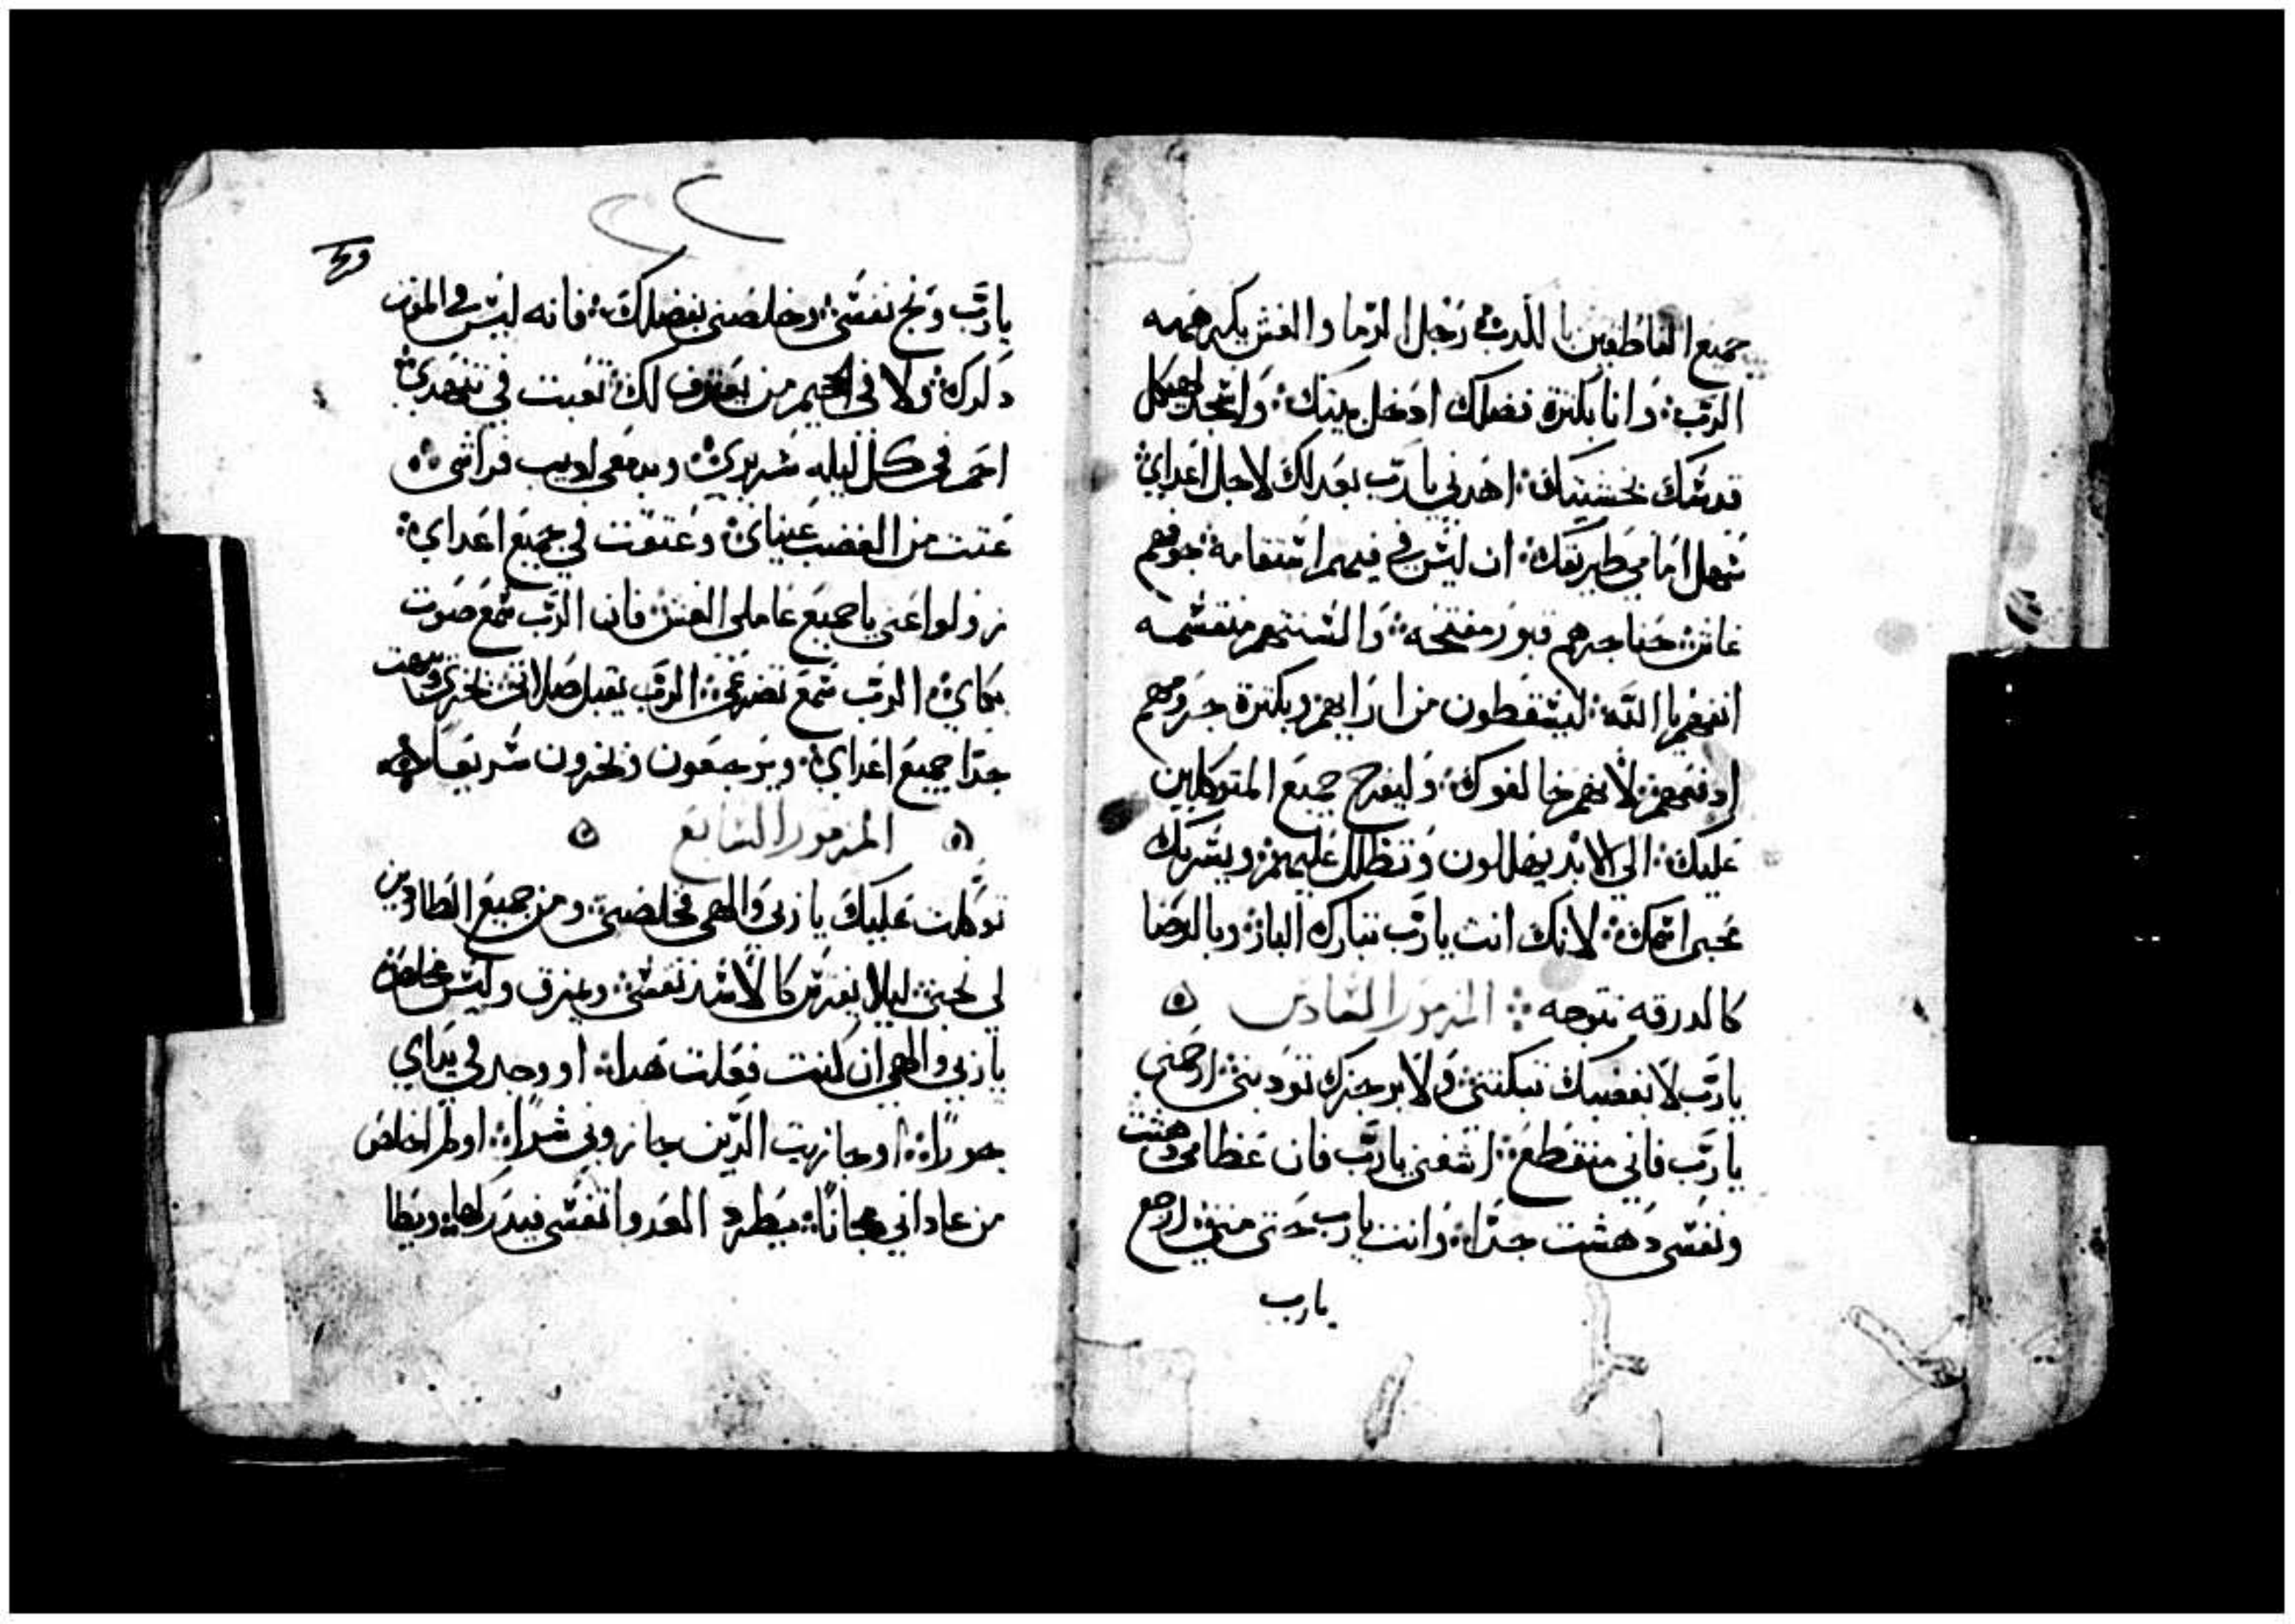 جميع الناطقين بالكذب رجل الدما والغش يكرهه
الرب وانا بكثرة فضلك ادخل بيتك واسجد لهيكل
قدسك بخشيتك اهدني يارب بعدلك لاجل اعداي
سهل امامي طريقك ان ليس في فيهم استقامه جوفهم
غاش حناجرهم قبور مفتحه والسنتهم منقسمه
انقمهم يا الله ليسقطون من ارايهم وبكثرة جرومهم
ادفعهم لانهم خالفوك وليفرح جميع المتوكلين
عليك الي الابد يهللون وتظلل عليهم ويسر بك
محبي اسمك لانك انت يارب تبارك البار وبالرضا
كالدرقه تتوجه المزمور السادس
يارب لا بغضبك تبكتني ولا برجزك تودبني ارحمني
يارب فاني منقطع اشفني يارب فان عظامي دهشت
ونفسي دهشت جدا وانت يارب حتى متي ارجع
يارب
٢٢
يارب ونج نفسي وخلصني بفضلك فانه ليس في الموت
ذكرك ولا في الجحيم من يعترف لك تعبت في تنهدي
احم في كل ليله سريري وبدمعي اذيب فراشي
عتت من الغضب عيناي وعتقت في جميع اعداي
زولوا عني يا جميع عاملي الغش فان الرب سمع صوت
بكاي الرب سمع تضرعي الرب يقبل صلاتي يخزي ويبهت
جدا جميع اعداي ويرجعون ويخزون سريعا
المزمور السابع
توكلت عليك يا ربي والهي فخلصني ومن جميع الطاردين
لي نجني ليلا يفترس كالاسد نفسي وعزق وليس مخلص
يا ربي والهي ان كنت فعلت هدا او وجد في يداي
جورا او جازيت الذين جازوني شرا او لم اخلص
من عاداني مجانا يطرد العدوا نفسي فيدركها ويطا